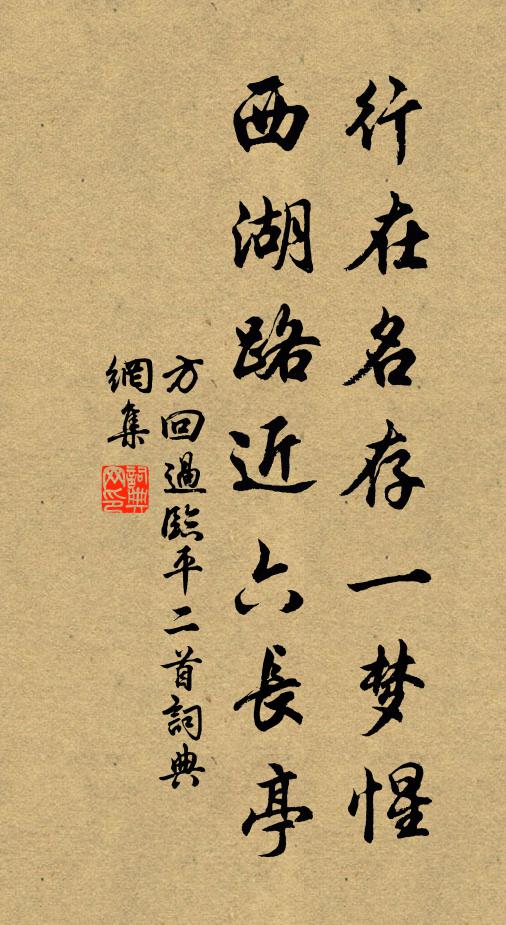 行在名存一梦惺
西湖路近六長亭
方回過臨平二首詞典
網集
詞典網印